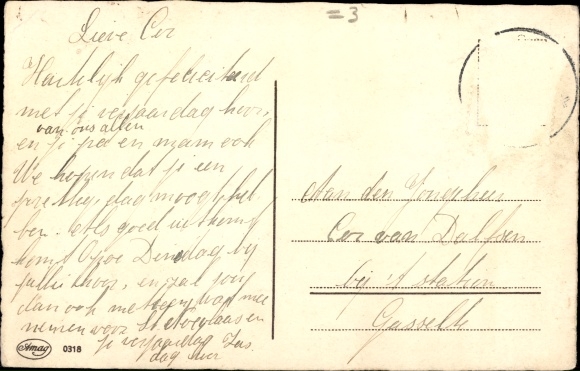 =3
Lieve Cor
Hartelijk gefeliciteerd
met je verjaardag hoor,
van ons allen
en je pa en mam ook
We hopen dat je een
prettige dag moogt heb
ben. Als goed uitkomt
komt Opoe Dinsdag bij
jullie hoor, en zal
dan ook meteen wat mee
nemen voor St Nicolaas en
je verjaardag
dag hoor
Aan den Jongeheer
Cor van Dalfsen
bij 't station
Gasselte
Amag 0318